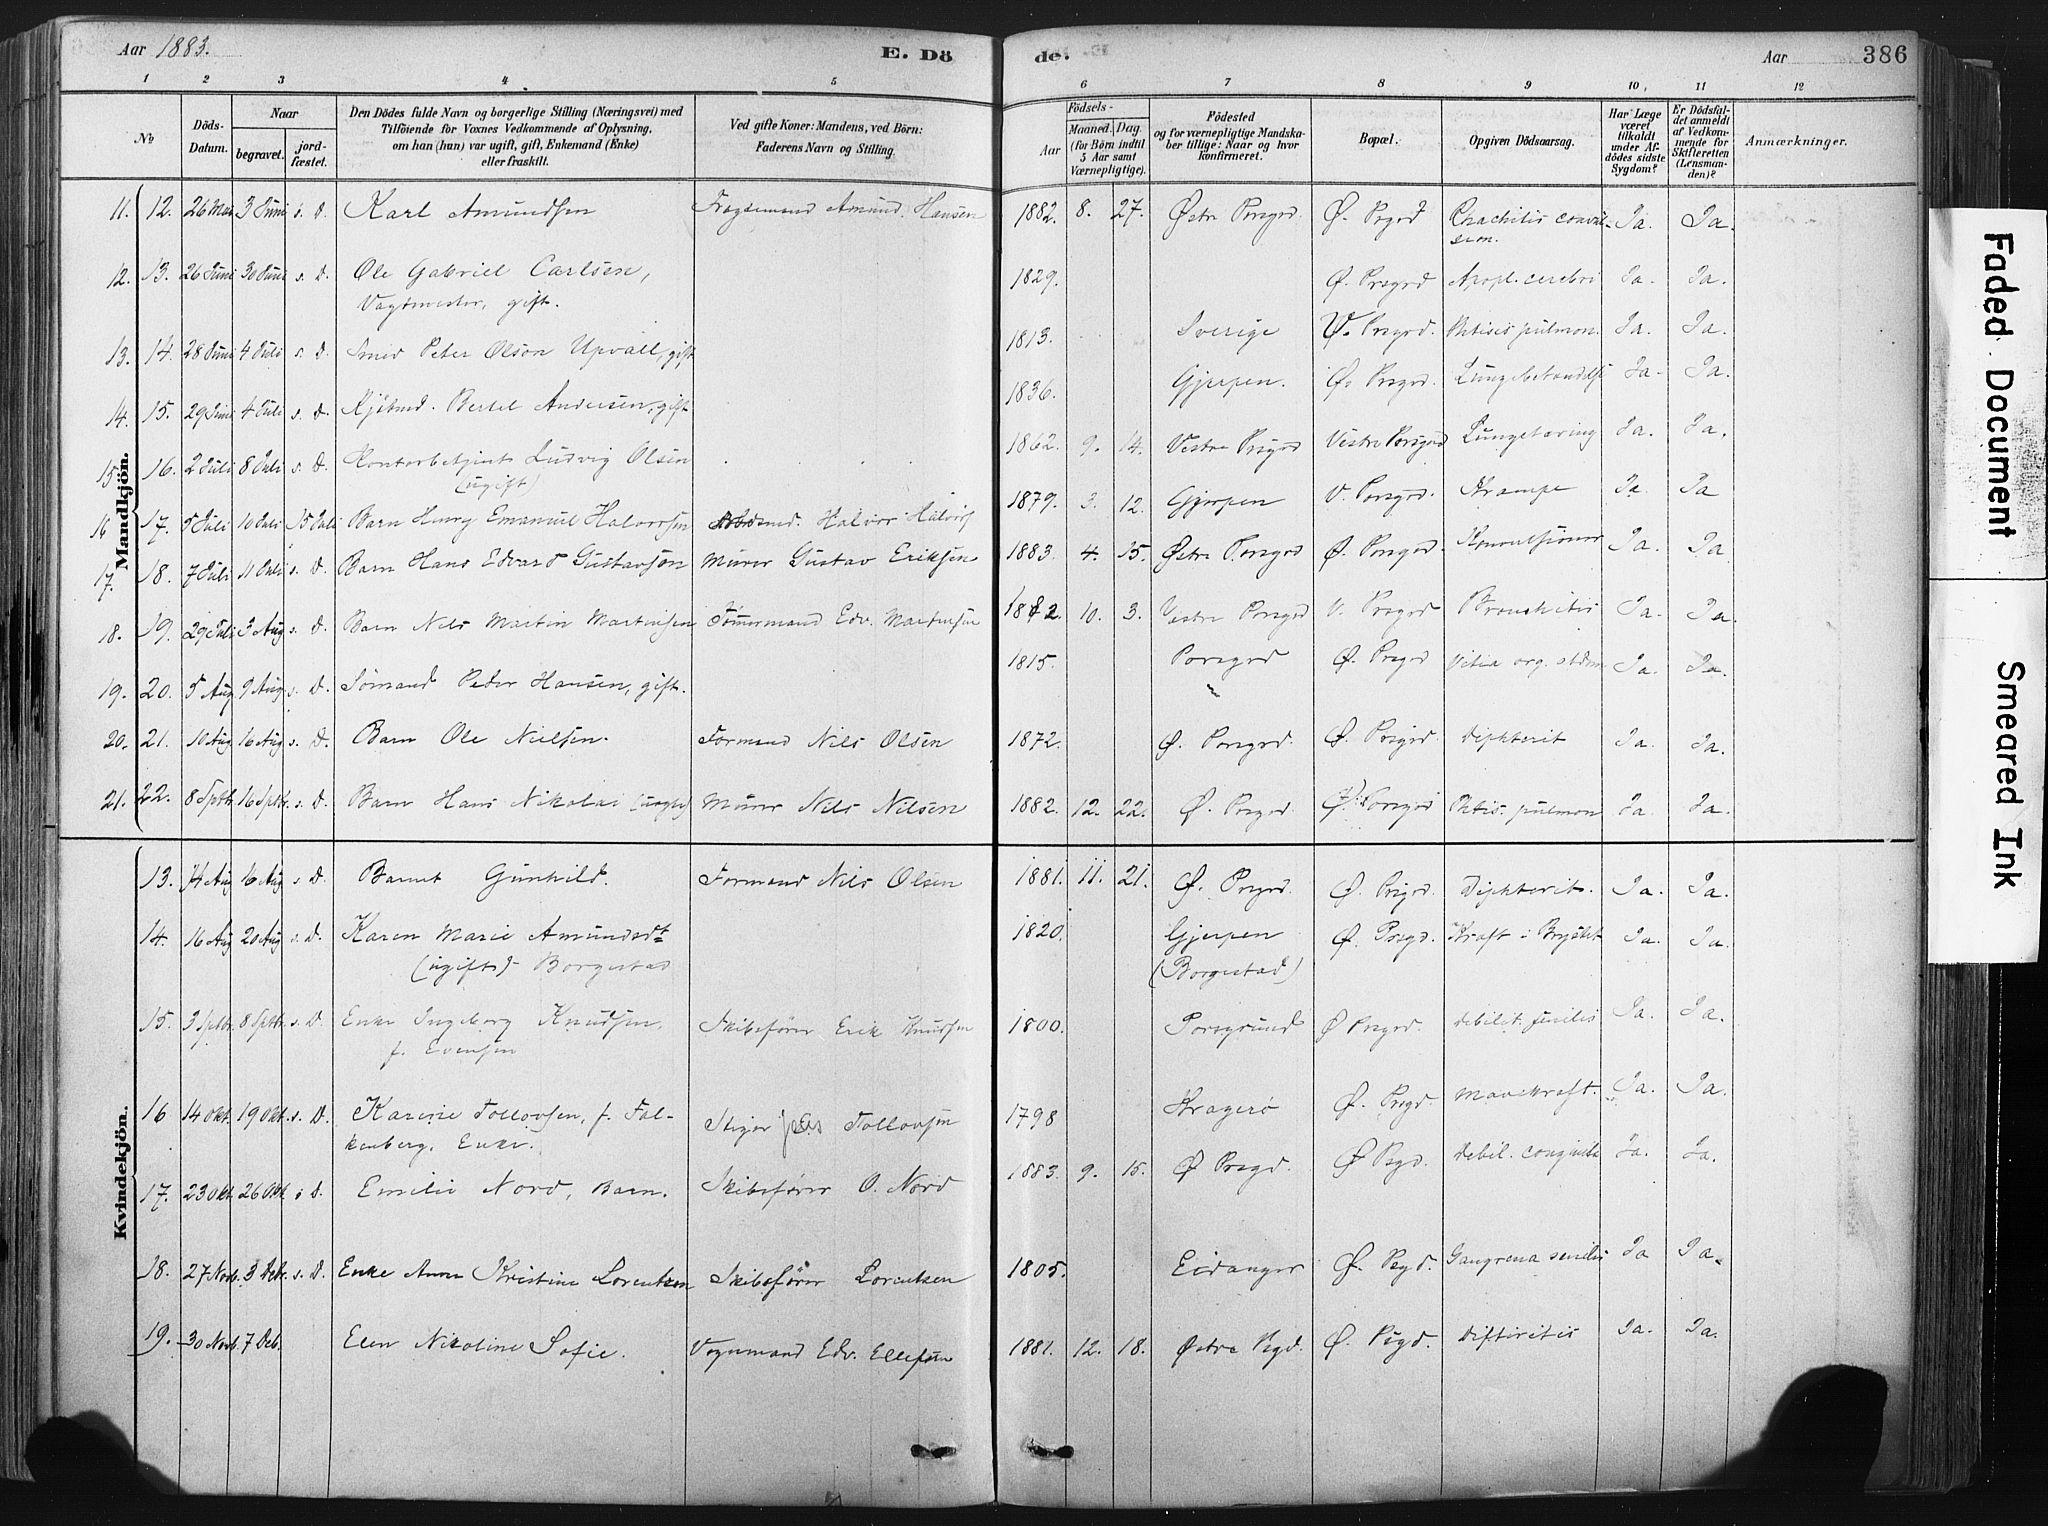 Aar 1883. E. Dö de. Aar 386
1 2 3 4 5 6 7 8 9 10, 11 12
No Döds-Datum. Naar begravet. jord-fæstet.
Den Dödes fulde Navn og borgerlige Stilling (Næringsvei) med
Tilföiende for Voxnes Vedkommende af Oplysning,
om han (hun) var ugift, gift, Enkemand (Enke)
eller fraskilt.
Ved gifte Koner: Mandens, ved Börn:
Faderens Navn og Stilling.
Födsels-
Aar Maaned. Dag.
(for Börn indtil
5 Aar samt
Værnepligtige).
Födested
og for værnepligtige Mandska-
ber tillige: Naar og hvor
konfirmeret.
Bopæl.
Opgiven Dödsaarsag.
Har Læge
været
tilkaldt
under Af-
dödes sidste
Sygdom?
Er Dödsfal-
det anmeldt
af Vedkom-
mende for
Skifteretten
(Lensman-
den)?
Anmærkninger.
Mandkjön.
11. 12. 26 Mai 3 Juni s. D. Karl Amundsen Amund. Hansen 1882 8. 27. Østre Porsgrd. Ø. Prsgrd Rhachitis convul-sion. Ja. Ja.
12. 13. 26 Juni 30 Juni s. D. Ole Gabriel Carlsen, 1829. Ø. Prsgrd Apopl. cerebri Ja. Ja.
Vagtmester, gift.
13. 14. 28 Juni 4 Juli s. D. Smed Peter Olson Upvall, gift 1813. Sverige V. Prsgrd. Phtisis pulmon. Ja. Ja.
14. 15. 29 Juni 4 Juli s. D. Kjöbmd. Bertel Andersen, gift 1836. Gjerpen. Ø. Prsgrd. Lungebetændelse Ja. Ja.
15 16. 2 Juli 8 Juli s. D. Kontorbetjent Ludvig Olsen 1862. 9. 14. Vestre Prsgrd Vestre Porsgrd Lungetæring Ja. Ja.
(ugift)
16 17. 5 Juli 10 Juli 15 Juli Barn Henry Emanuel Halvorsen Halvor Halvors 1879. 3. 12. Gjerpen V. Porsgrd. Krampe Ja. Ja
17. 18. 7 Juli 11 Juli s. D. Barn Hans Edvard Gustavsen Murer Gustav Eriksen 1883. 4. 15. Østre Porsgrd Ø. Porsgrd. Konvulsioner Ja. Ja
18. 19. 29 Juli 3 Aug s. D. Barn Nils Martin Martinsen Tömmermand Edv. Martinsen 1882. 10. 3. Vestre Porsgrd V. Prsgrd Bronchitis Ja. Ja.
19. 20. 5 Aug 9 Aug s. D. Sömand Peder Hansen, gift. 1815. Porsgrd Ø. Prsgrd Vitia org. Ja. Ja.
20. 21. 10 Aug 16 Aug s. D. Barn Ole Nielsen. Formand Nils Olsen 1872. Ø. Porsgrd. Ø. Porsgrd. Diphterit Ja. Ja.
21. 22. 8 Sptbr. 16 Sptbr. s. D. Barn Hans Nikolai Murer Nils Nilsen 1882. 12. 22. Ø. Prsgrd. Ø. Porsgrd Phtis. pulmon Ja. Ja.
Kvindekjön.
13. 14 Aug 16 Aug s. D. Barnet Gunhild. Formand Nils Olsen 1881. 11. 21. Ø. Prsgrd. Ø. Prsgrd. Diphterit. Ja. Ja.
14. 16 Aug 20 Aug s. D. Karen Marie Amundsdt 1820. Gjerpen Ø. Prsgd. Kræft i Brystet Ja. Ja.
(ugift) Borgestad (Borgestad)
15. 3 Sptbr. 8 Sptbr. s. D. Enke Ingeborg Knudsen, Skibsförer Erik Knudsen 1800. Porsgrund Ø Prsgrd. Debilit. senilis Ja. Ja.
f. Evensen
16 14 Okt. 19 Okt. s. D. Karine Tollovsen, f. Fal- Stiger Tollovsen 1798 Kragerö Ø. Prsgd. Mavekræft. Ja. Ja.
kenberg, Enke.
17. 23 Okt. 26 Okt s D. Emilie Nord, Barn. Skibsförer O. Nord 1883. 9. 15. Ø Prsgd. Ø Psgd. Debil. congenita Ja. Ja.
18. 27 Novb. 3 Debr. s. D. Enke Anne Kristine Lorentzen Skibsförer Lorentsen 1805. Eidanger Ø. Psgd. Gangrena senilis Ja Ja.
19. 30 Novb. 7 Deb. Elen Nikoline Sofie. Vognmand Edv. Ellefsen 1881. 12. 18. Østre Psgd. Ø. Psgd. Difteritis Ja. Ja.
Faded Document Smeared Ink